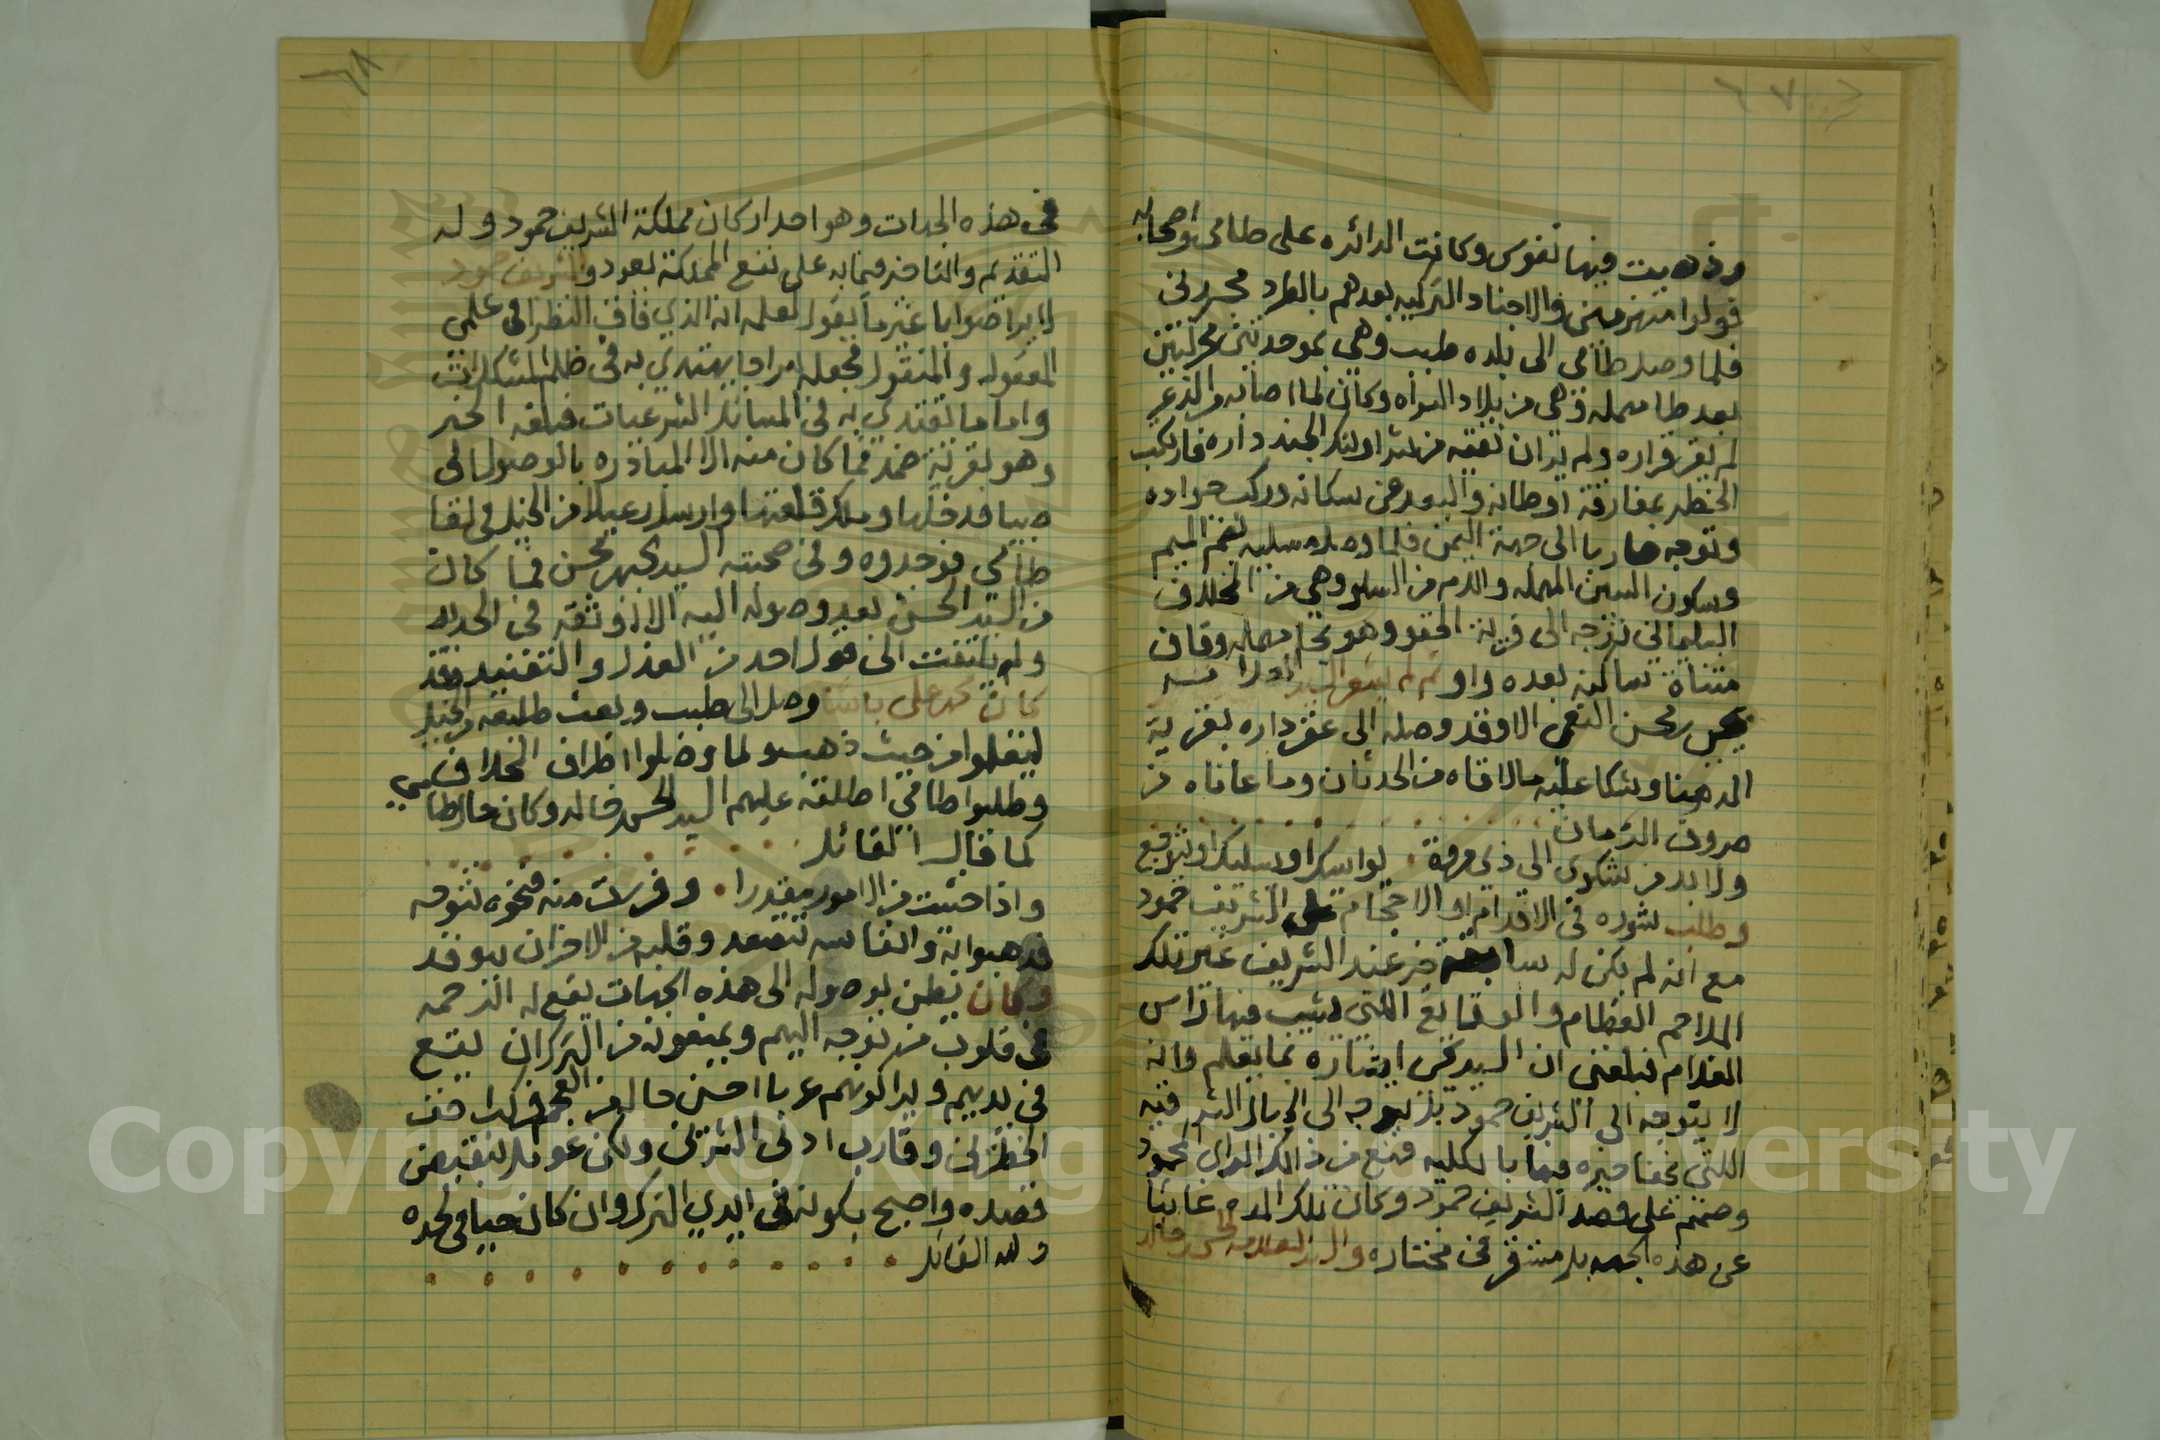 ٦٧
وذهبت فيها نفوس وكانت الدائره على طامي واصحابه
فولوا منهزمين والاجناد التركيه بعدهم بالطرد
فلما وصل طامي الى بلده طبب وهي بموحدتين محركتين
بعد طا مهمله وهي من بلاد السراه وكان لما اصابه من الذعر
لم يقر قراره ولم ير ان تقيه من شر اولئك الجند داره فارتكب
الخطر بمفارقة اوطانه والبعد عن سكانه وركب جواده
وتوجه هاربا الى جهة اليمن فلما وصل مسليه بضم الميم
وسكون السين المهمله واللام من وهي من المخلاف
السليماني توجه الى قرية الحقو وهو بحا مهمله وقاف
مثناة ساكنه بعده واو ثم لم يشعر السيد
يحيى بن محسن النعمي الا وقد وصله الى عقر داره بقرية
الدهنا وشكا عليه ما لاقاه من الحدثان وما عاناه من
صروف الزمان
ولا بد من شكوى الى ذي مروة ٠ يواسيك او يسليك او يتوجع
وطلب شوره في الاقدام او الاحجام على الشريف حمود
مع انه لم يكن له سابقة خير عند الشريف غير تلك
الملاحم العظام والوقايع اللتي يشيب فيها راس
الغلام فبلغني ان السيد يحيى اشاره بما يعلم وانه
لا يتوجه الى الشريف حمود بل يوجه الى الجبال الشرقيه
اللتي تخفا خبره فيها بالكليه فمنع من ذالك الراي المحمود
وصمم على قصد الشريف حمود وكان تلك المده غايبا
عن هذه الجهه بل مستقر في مختاره والوزير العلامه الحسن بن خالد
٦٨
في هذه الجهات وهو احد اركان مملكة الشريف حمود وله
التقديم والتاخير فيما به على نفع المملكة يعود والشريف حمود
لا يرا صوابا غير ما يقول لعلمه انه الذي فاق النظرا في علمي
المعقول والمنقول فجعله سراجا يهتدي به في ظلم المشكلات
واماما يقتدي به في المسائل الشرعيات فبلغه الخبر
وهو بقرية ضمد فما كان منه الا المبادره بالوصول الى
صبيا فدخلها وملك قلعتها وارسل رعيلا من الخيل في لقا
طامي فوجدوه وفي صحبته السيد يحيى بن محسن فما كان
من السيد الحسن بعد وصوله اليه الا اوثقه في الحديد
ولم يلتفت الى قول احد من العذل والتفنيد وقد
كان محمد علي باشا وصل الى طبب وبعث طليعه من الخيل
لينظروا من حيث ذهب ولما وصلوا اطراف المخلاف
وطلبوا طامي اطلقه عليهم السيد الحسن بن خالد وكان حال طامي
كما قال القائل
واذا خشيت من الامور مقدرا ٠ وفررت منه فنحوه تتوجه
فذهبوا به وانفاسه تتصعد وقلبه من الاحزان يتوقد
وكان يظن بوصوله الى هذه الجهات يقع له الرحمه
في قلوب من توجه اليهم ويمنعونه من التركان يقع
في يديهم ويرا كونهم عربا احسن حالا من العجم فركب اخف
الخطرين وقارب ادنى الشرين ولكن عومل بنقيض
قصده واصبح بكونه في ايدي الترك وان كان حيا في لحده
ولله القائل